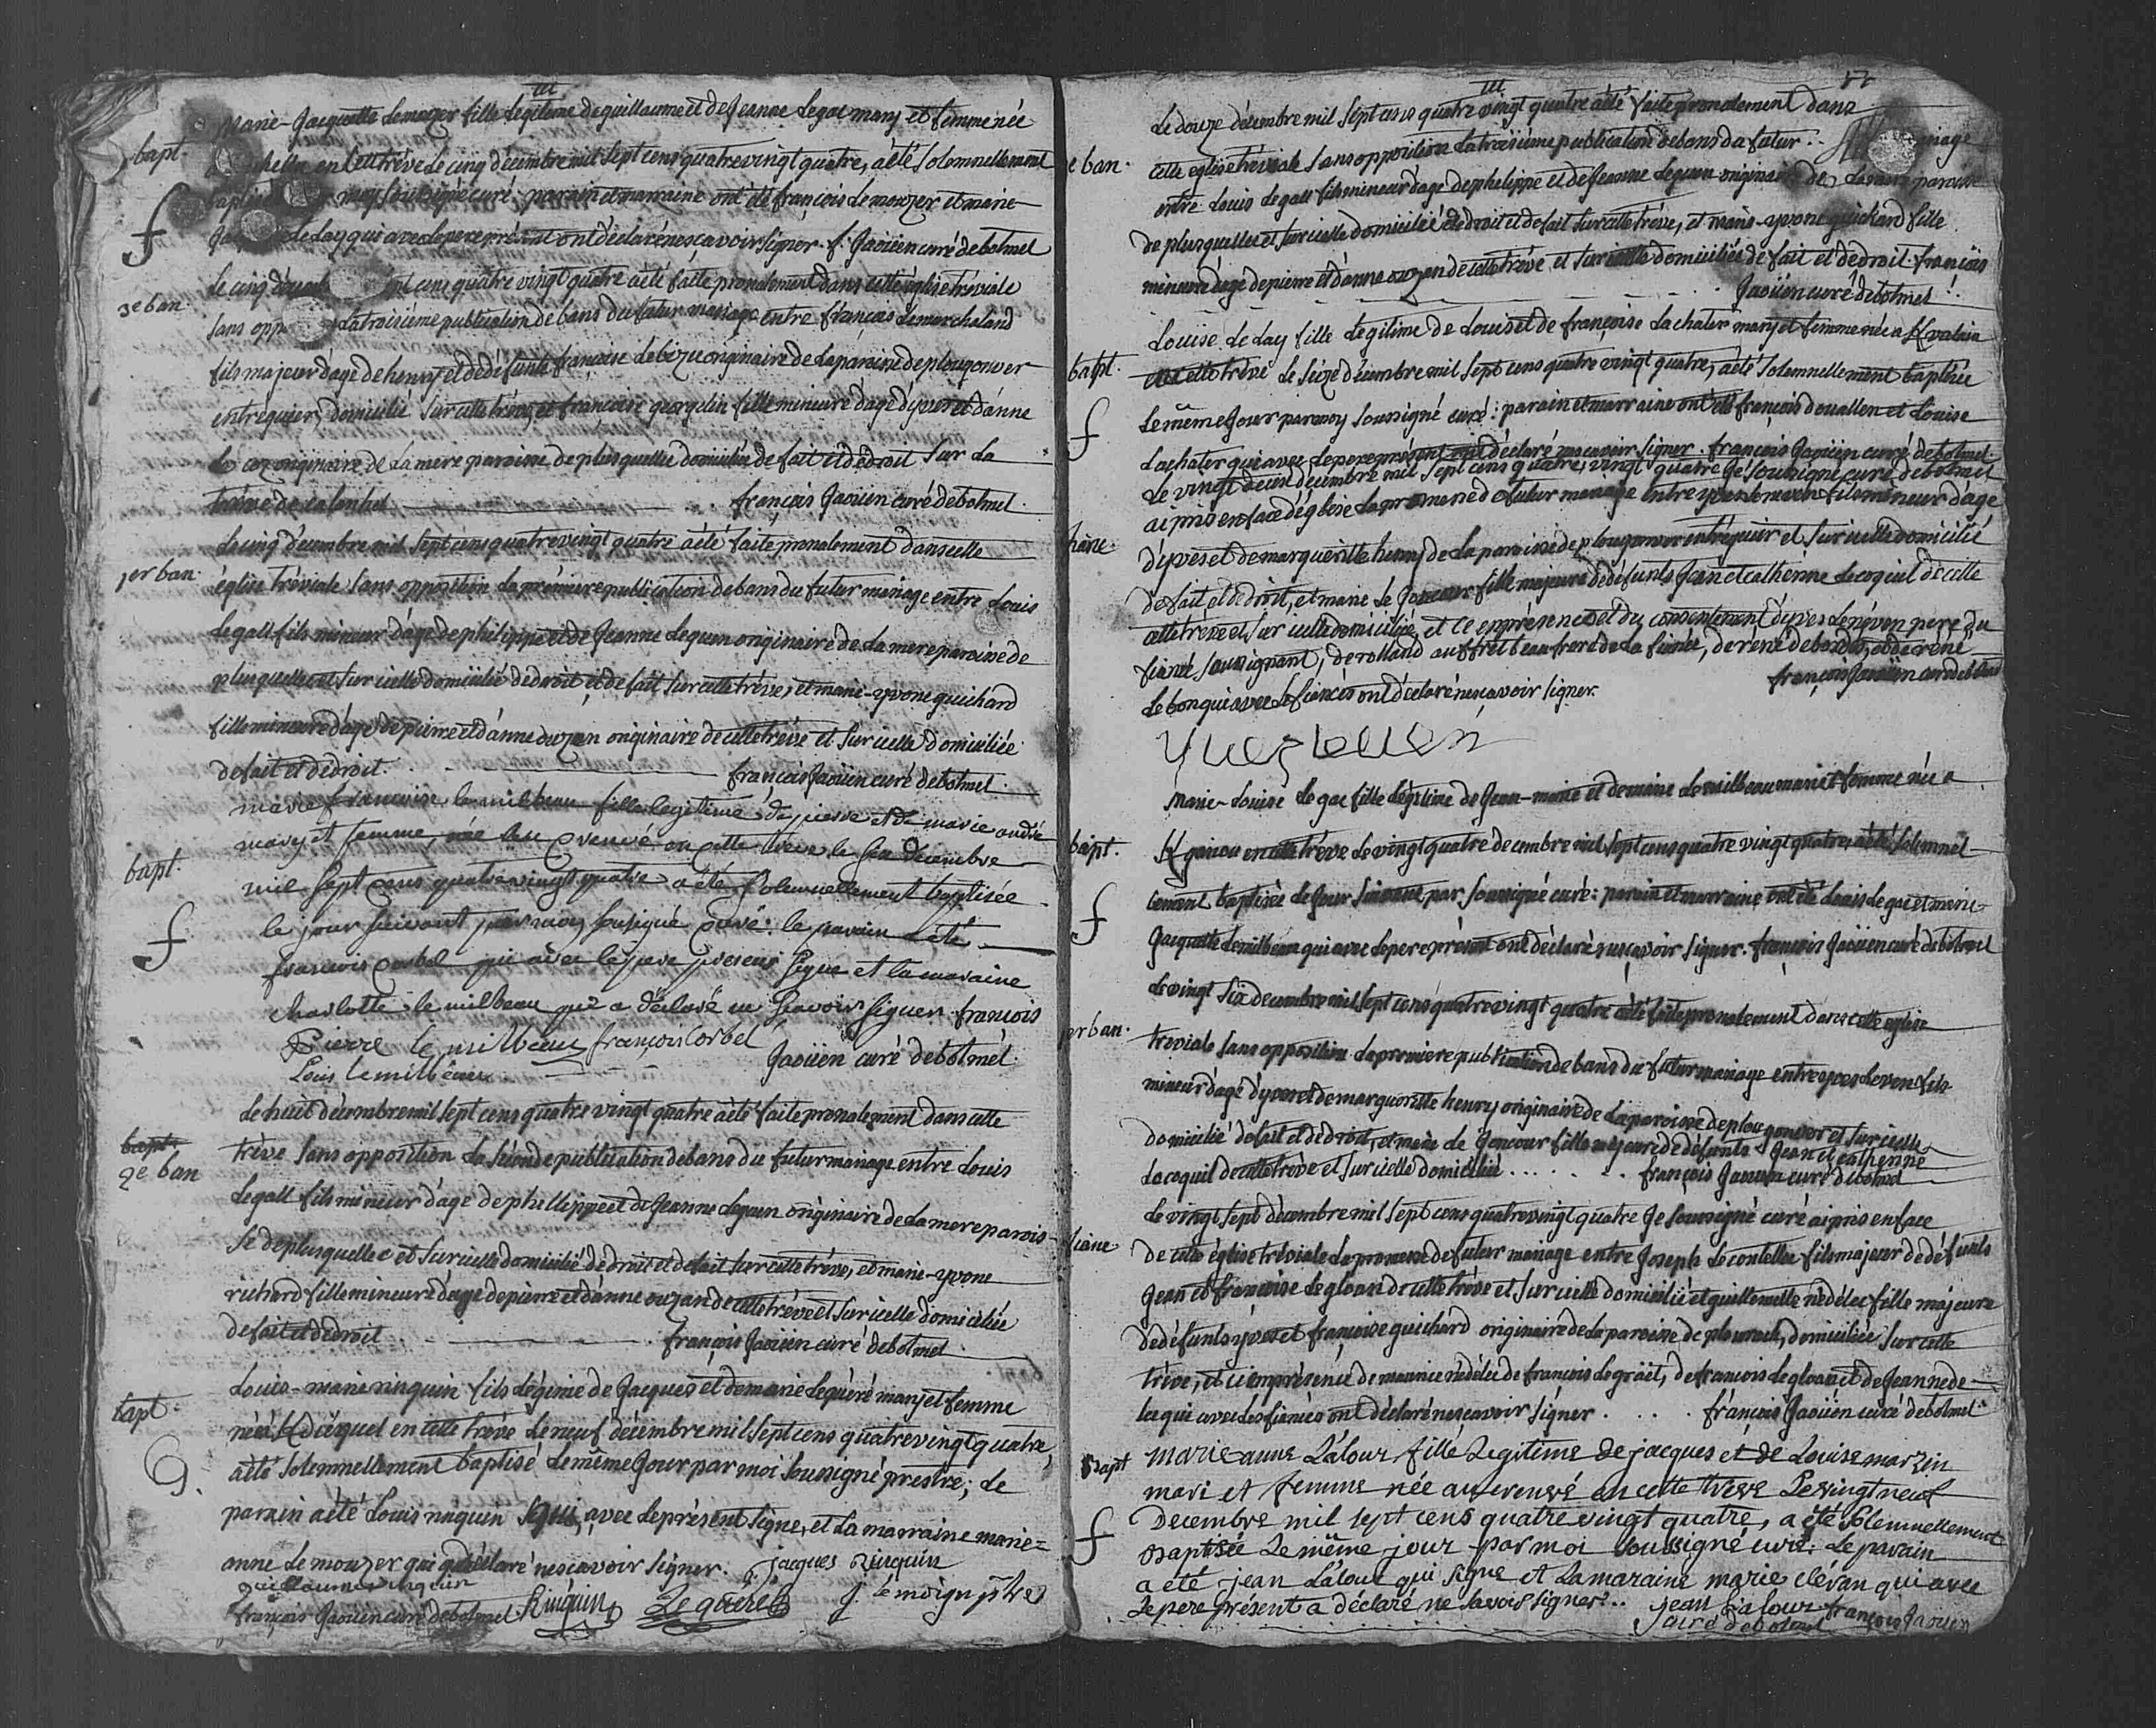 Marie-Jacquette Lemozer fille légitime de guillaume et de Jeanne Legac mary et femme née
bapt.
en cette trève le cinq décembre mil sept cens quatre vingt quatre, a été solemnellement
moy soussigné curé: parain et marraine ont été françois Lemozer et marie
f
Le Lay qui avec le pere présent ont déclaré ne scavoir signer. f. Jaoüen curé de botmel
Le cinq cens quatre vingt quatre a été faitte pronalement dans cette église tréviale
3e ban.
sans opp la troisiéme publication de bans du futur mariage entre françois Lemarchaland
fils majeur d'age de henry et de défunte françoise Lebizu originaire de la paroisse de plougonver
en treguier, domicilié sur cette trève, et françoise quezelin fille mineure d'age d'yves et d'anne
Le coz originaire de la mere paroisse de plusquellec domiciliée de fait et de droit sur la
trève de calanhel françois Jaoüen curé de botmel.
Le cinq décembre mil sept cens quatre vingt quatre a été faite pronalement dans cette
1er ban.
église tréviale sans opposition la prémiere publication de bans du futur mariage entre Louis
Legall fils mineur d'age de philippe et de Jeanne Leguen originaire de la mere paroisse de
plusquellec et sur icelle domicilié de droit et de fait sur cette trève, et marie-yvone guichard
fille mineure d'age de pierre et d'anne ouzan originaire de cette trève et sur icelle domiciliée
de fait et de droit. françois Jaoüen curé de botmel.
marie françoise le milbeau fille legitime de pierre et de marie andré
mary et femme, née au en cette trève le six décembre
bapt.
mil sept cens quatre vingt quatre a été solemnellement baptisée
le jour suivant par moy sousigné curé: le parain a été
f
françois corbel qui avec le pere present signe et la maraine
charlotte le milbeau qui a déclaré ne scavoir signer. françois
Pierre le milbeau françois Corbel Jaoüen curé de botmel.
Louis lemilbeau
Le huit décembre mil sept cens quatre vingt quatre a été faite pronalement dans cette
bapt.
2e ban
trève sans opposition la séconde publication de bans du futur mariage entre Louis
Legall fils mineur d'age de phelippe et de Jeanne Leguen originaire de la mere parois-
se de plusquellec et sur icelle domicilié de droit et de fait sur cette trève, et marie-yvone
richard fille mineure d'age de pierre et d'anne ouzan de cette trève et sur icelle domiciliée
de fait et de droit françois Jaoüen curé de botmel.
Louis-marie rinquin fils légime de Jacques et de marie Lequéré mary et femme
bapt.
en cette trève le neuf décembre mil sept cens quatre vingt quatre,
a été solemnellement baptisé le même jour par moi soussigné prestre; le
G.
parain a été Louis rinquin qui, avec le présent signe, et la marraine marie-
anne Le mouzer qui a déclaré ne scavoir signer. jacques rinquin
guillaume rinquin
françois Jaoüen curé de botmel Rinquin Lequéré J. lemoign ptre
Le douze décembre mil sept cens quatre vingt quatre a été faite pronalement dans
e ban.
cette eglise tréviale sans opposition la troisiéme publication de bans du futur mariage
entre Louis Legall fils mineur d'age de phelippe et de Jeanne Leguen originaire de la mere paroisse
de plusquellec et sur icelle domicilié de droit et de fait sur cette trève, et marie-yvone guichard fille
mineure d'age de pierre et d'anne ouzan de cette trève et sur icelle domiciliée de fait et de droit. françois
Jaoüen curé de botmel.
Louise Le Lay fille legitime de Louis et de françoise Lachater mary et femme née a
bapt.
en cette trève le seize décembre mil sept cens quatre vingt quatre, a été solemnellement baptisée
le même Jour par moy soussigné curé: parain et marraine ont été françois douallen et Louise
f
Lachater qui avec le pere présent ont déclaré ne scavoir signer. françois Jaoüen curé de botmel.
Le vingt deux décembre mil sept cens quatre vingt quatre Je soussigné curé de botmel
ai pris en face d'église la promesse de futur mariage entre yves fils mineur d'age
d'yves et de marguerite henry de la paroisse de plougonver en tréguier et sur icelle domicilié
de fait et de droit, et marie le Joncour fille majeure de défunts Jean et catherine Le coquil de cette
cette trève et sur icelle domiciliée, et ce en présence et du consentement d'yves pere du
fiancé, soussignant, de rolland auffret beau frere de la fiancée, de rené et de réné
Le bon qui avec les fiancés ont déclaré ne scavoir signer. françois Jaoüen curé de botmel
yves leven
Marie-Louise Le gac fille légitime de Jean-marie et de marie Le milbeau mari et femme née a
bapt.
en cette trève le vingt quatre decembre mil sept cens quatre vingt quatre a été solemnel-
lement baptisée le Jour suivant par soussigné curé: parain et marraine ont été Louis le gac et marie
f
Jacquette Le milbeau qui avec le pere présent ont déclaré ne scavoir signer. françois Jaoüen curé de botmel
Le vingt six decembre mil sept cens quatre vingt quatre a été faite pronalement dans cette eglise
er ban.
treviale sans opposition la premiere publication de bans du futur mariage entre yves Leven fils
mineur d'age d'yves et de marguerite henry originaire de la paroisse de plougonver et sur icelle
domicilié de fait et de droit, et marie le Joncour fille majeure de défunts Jean et catherine
Le coquil de cette trève et sur icelle domiciliée ...... françois Jaoüen curé de botmel
Le vingt sept décembre mil sept cens quatre vingt quatre Je soussigné curé ai pris en face
fiance
de cette église tréviale la promesse de futur mariage entre Joseph Le contellec fils majeur de défunts
Jean et françoise Le gloan de cette trève et sur icelle domicilié et guillemette nédélec fille majeure
de défunts yves et françoise guichard originaire de la paroisse de plourach, domiciliée sur cette
trève, et ce en présence de maurice nédélec de françois Le graët, de françois Le gloan et de Jeanne de-
lec qui avec les fiancés ont déclaré ne scavoir signer .... françois Jaoüen curé de botmel.
bapt
marie anne Lalour fille Legitime de jacques et de Louise marzin
mari et femme née au en cette treve Le vingt neuf
Decembre mil sept cens quatre vingt quatre, a été solemnellement
f
Baptisée Le même jour par moi soussigné curé: Le parain
a eté jean Lalour qui signe et La maraine marie clévan qui avec
Le pere présent a déclaré ne savoir signer.. jean Lalour françois Jaouen
curé de botmel